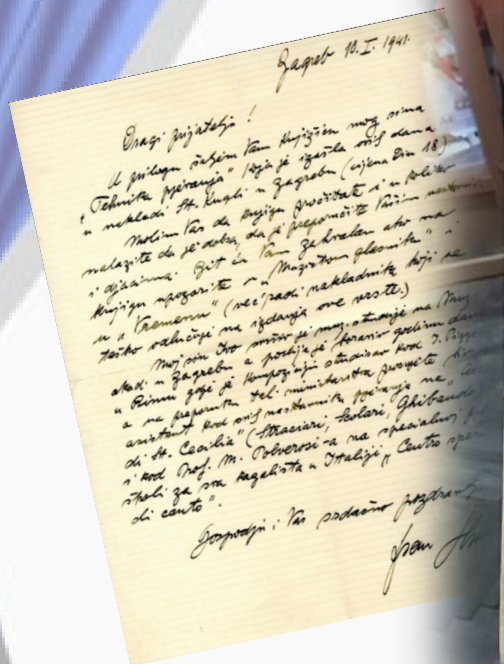 Zagreb 10.I.1941.
Dragi prijatelju!
U prilogu šaljem Vam knjižicu mog sina
„Tehnika pjevanja" koja je izašla ovih dana
u nakladi St. Kugli u Zagrebu (cijena Din 18)
Molim Vas da knjigu pročitate i u koliko
nalazite da je dobra, da je preporučite Vašim
i djacima. Bit ću Vam zahvalan ako na
knjigu upozorite u „Muzičkom glasniku" i
u „Vremenu" (već radi nakladnika koji se
teško odlučuje na izdanja ove vrste.)
Moj sin Ivo svršio je muz. studije na Muz
akad. u Zagrebu a poslije je
u Rimu gdje je kompoziciju studirao kod I. Pizze
a na preporuku tal. ministarstva prosvjete bio
asistent kod svih nastavnika pjevanja na „Acc
di St. Cecilia" (Straciari, Scolari, Ghibaudo)
i kod Prof. M. Polverosi-a na specijalnoj
školi za sva kazališta u Italiji „Centro sper
di canto".
Gospodju i Vas srdačno pozdrav